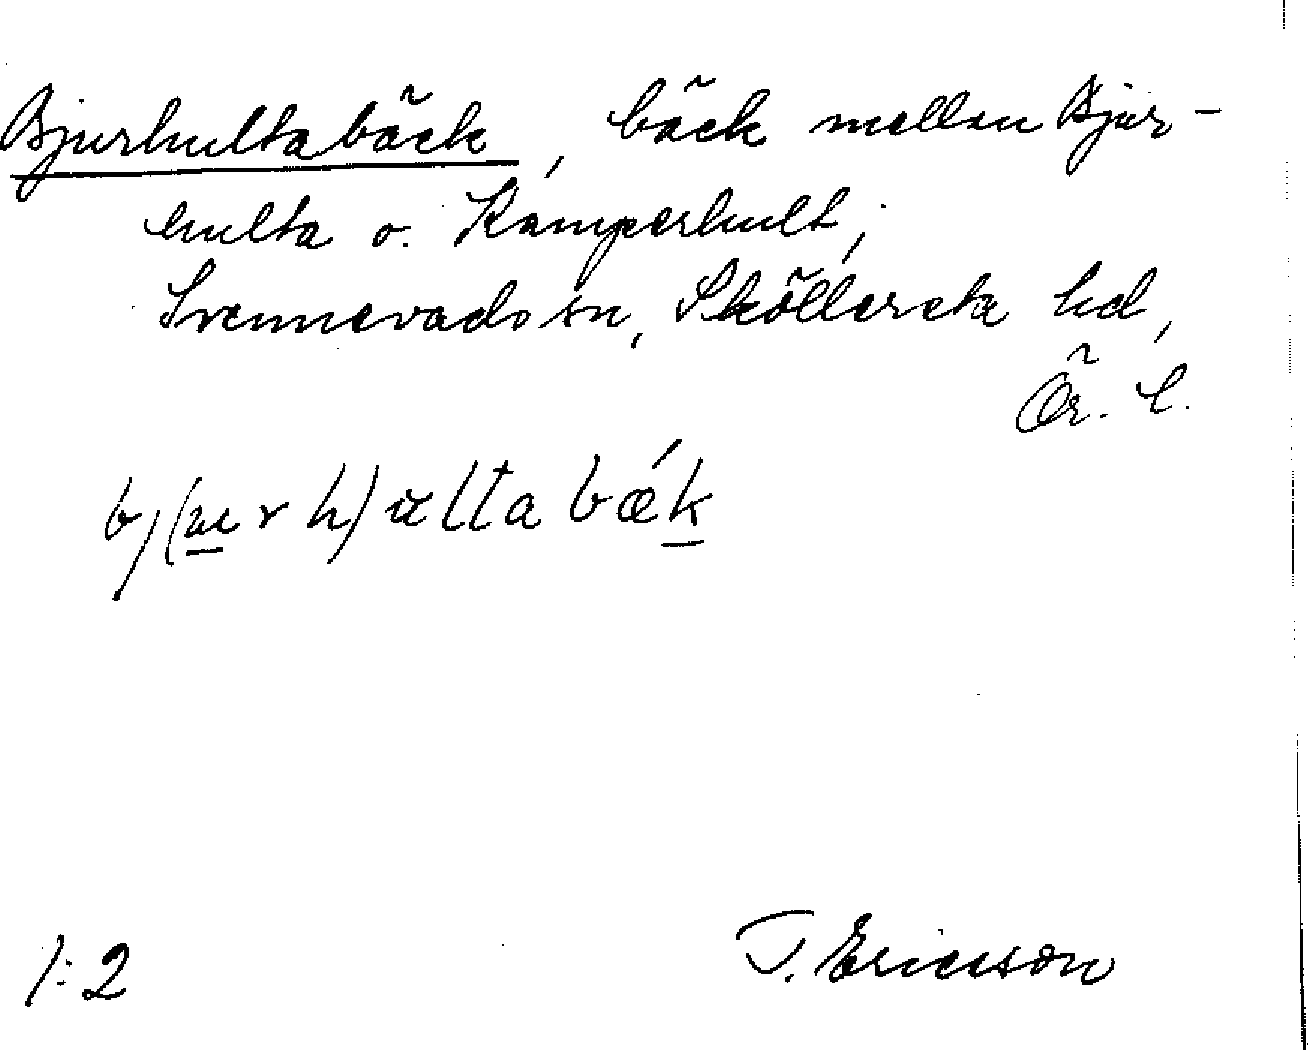 Bjurhultabäck, bäck mellan Bjur-
hulta o. Kamperhult,
Svennevads sn, Sköllersta hd,
Ör. l.
bj(ur h)ultabǽk
1:2
T. Ericsson